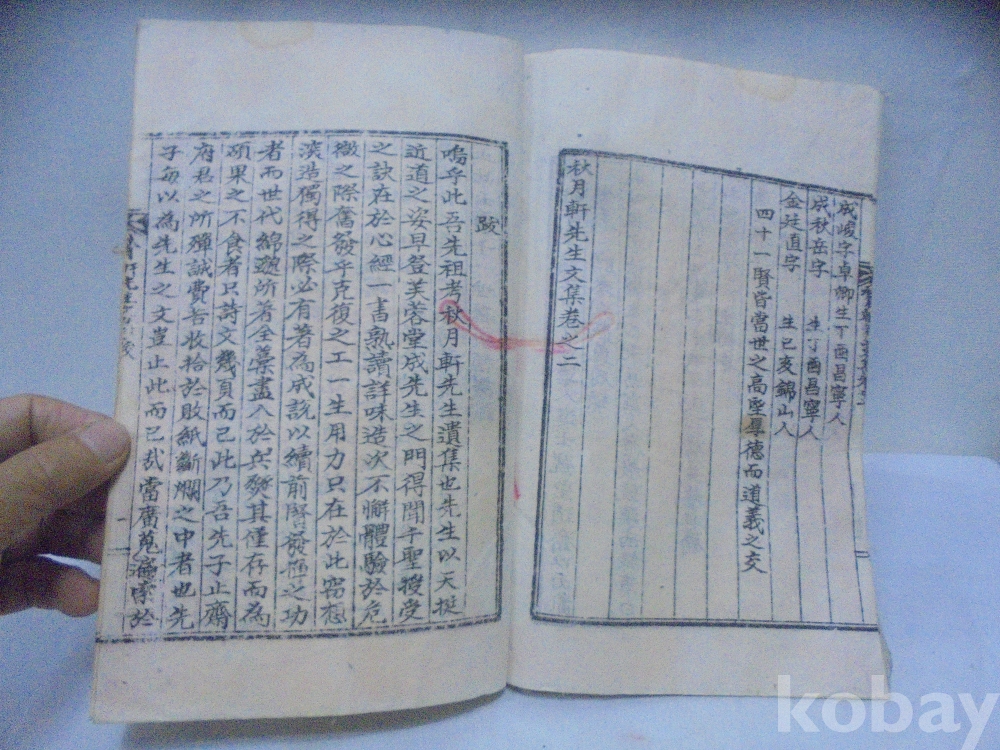 成峻字卓卿生丁酉昌寧人
成秋岳字 生丁酉昌寧人
金廷直字 生己亥錦山人
四十一賢皆當世之高聖厚德而道義之交
秋月軒先生文集卷之二
跋
嗚乎此吾先祖考秋月軒先生遺集也先生以天挺
近道之姿早登芙蓉堂成先生之門得聞千聖授受
之訣在於心經一書熟讀詳味造次不懈體驗於危
微之際奮發乎克復之工一生用力只在於此窃想
深造獨得之際必有著為成說以續前賢發極之功
者而世代綿邈所著全藁盡入於兵燹其僅存而為
碩果之不食者只詩文幾頁而已此乃吾先子止齋
府君之所殫誠費苦收拾於敗紙斷爛之中者也先
子每以為先生之文豈止此而已哉當廣蒐遍索於
kobay